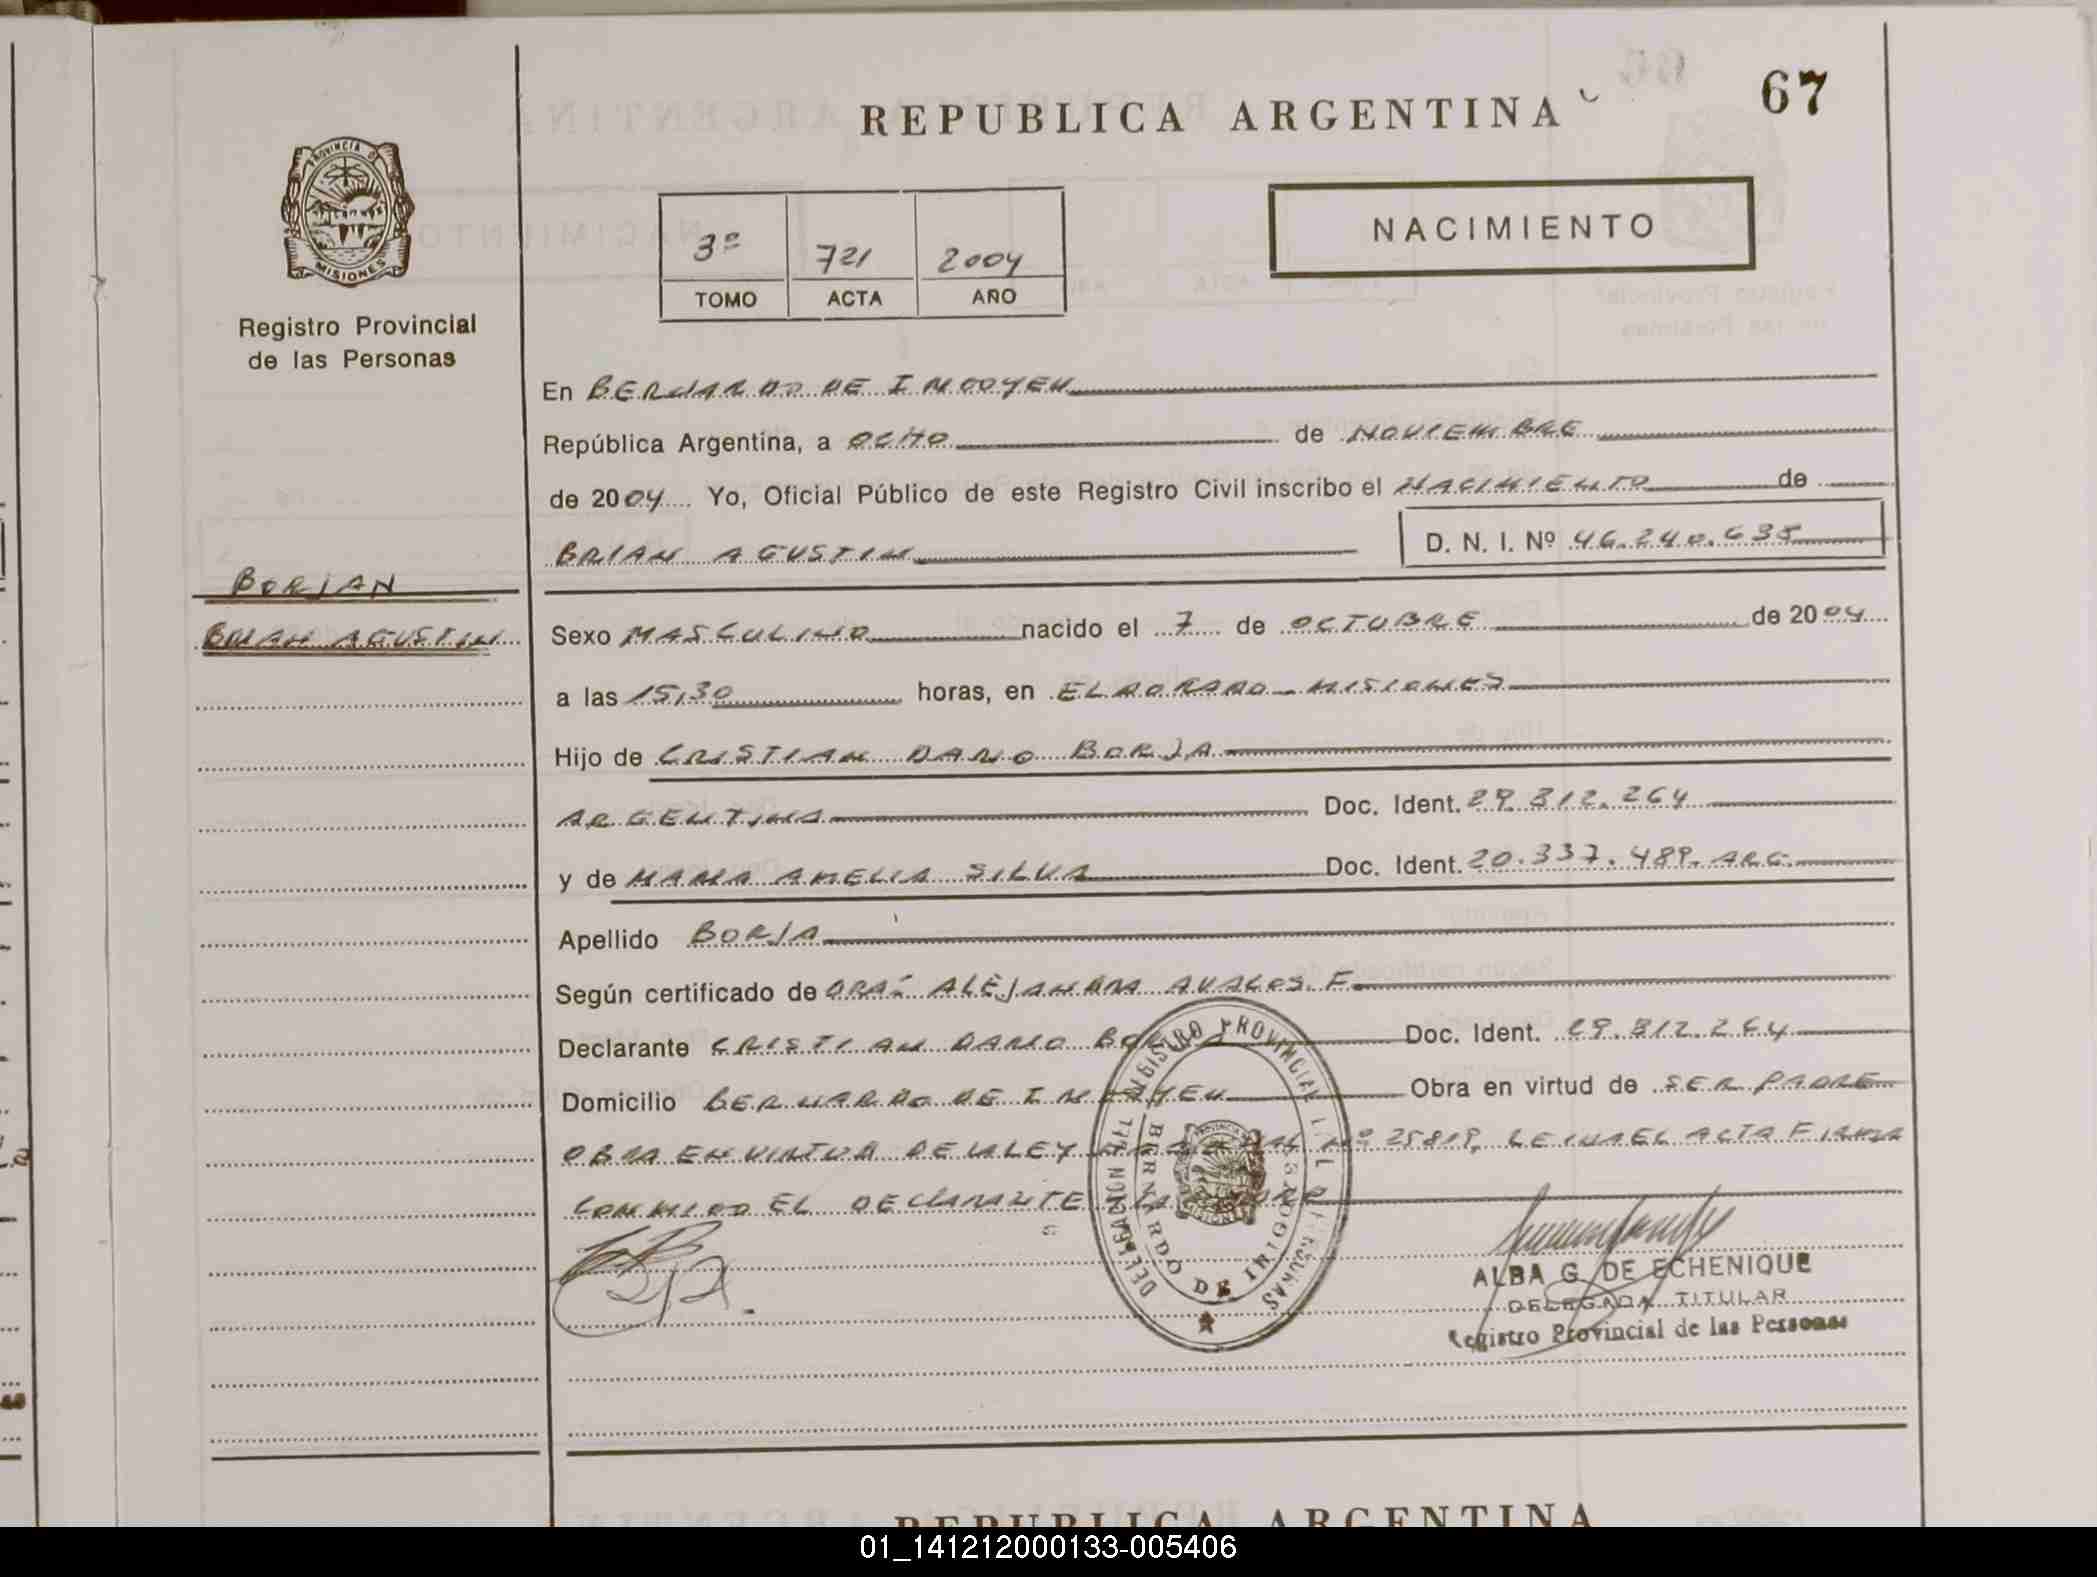 REPUBLICA ARGENTINA
67
PROVINCIA DE
MISIONES
Registro Provincial
de las Personas
3º 721 2004
TOMO ACTA AÑO
NACIMIENTO
En BERNARDO DE IRIGOYEN
República Argentina, a OCHO de NOVIEMBRE
de 2004 Yo, Oficial Público de este Registro Civil inscribo el NACIMIENTO de
BRIAN AGUSTIN D. N. I. Nº 46.240.635
BORJAN
BRIAN AGUSTIN
Sexo MASCULINO nacido el 7 de OCTUBRE de 2004
a las 15,30 horas, en ELDORADO - MISIONES
Hijo de CRISTIAN DARIO BORJA
ARGENTINA Doc. Ident. 29.812.264
y de MARIA AMELIA SILVA Doc. Ident. 20.337.489. ARG.
Apellido BORJA
Según certificado de DRA. ALEJANDRA AVALOS F.
Declarante CRISTIAN DARIO BORJA Doc. Ident. 29.812.264
Domicilio BERNARDO DE IRIGOYEN Obra en virtud de SER PADRE
OBRA EN VIRTUD DE LA LEY NACIONAL Nº 25819, LEIDA EL ACTA FIRMA
CONMIGO EL DECLARANTE
DELEGACION REGISTRO PROVINCIAL DE LAS PERSONAS
BERNARDO DE IRIGOYEN
ALBA G. DE ECHENIQUE
DELEGADA TITULAR
Registro Provincial de las Personas
REPUBLICA ARGENTINA
01_141212000133-005406